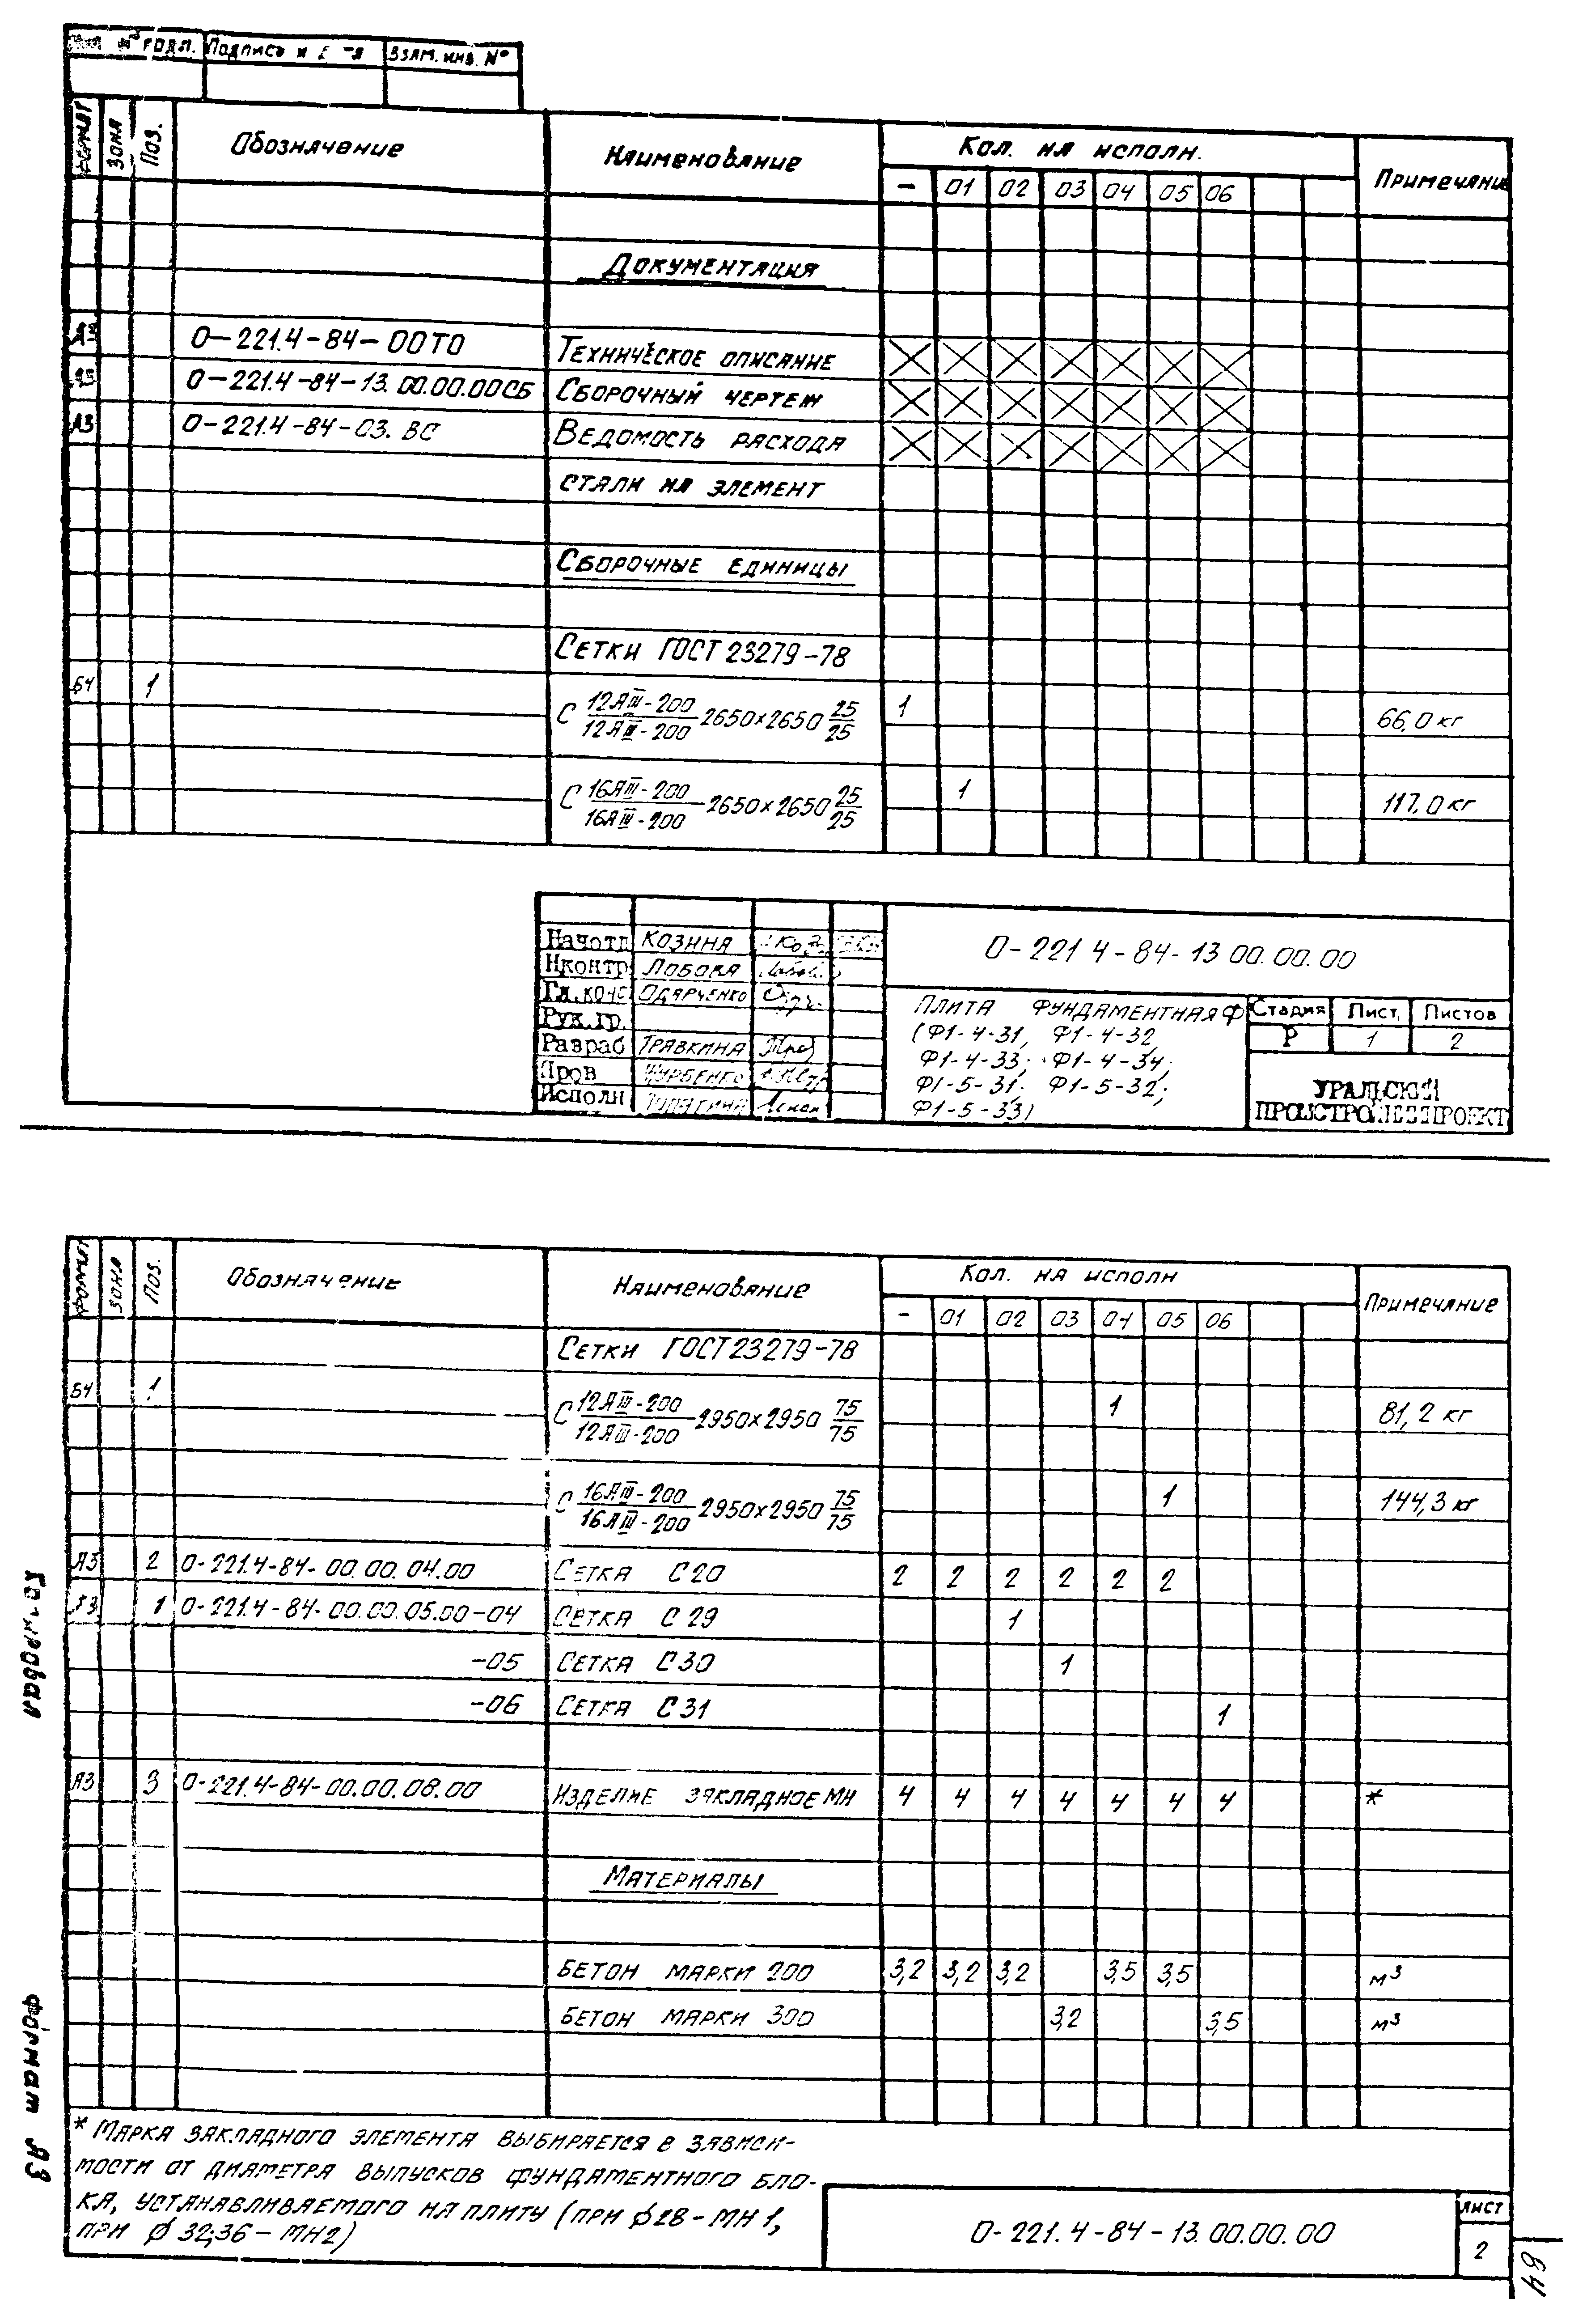 Подпись и Взам. инв. №
Формат Зона Поз. Обозначение Наименование Кол. на исполн. Примечание
- 01 02 03 04 05 06
Документация
А3 0-221.4-84-00ТО Техническое описание
А3 0-221.4-84-13.00.00.00СБ Сборочный чертеж
А3 0-221.4-84-03.ВС Ведомость расхода
стали на элемент
Сборочные единицы
Сетки ГОСТ 23279-78
БЧ 1 С 12АIII-200/12АIII-200 2650×2650 25/25 1 66,0 кг
С 16АIII-200/16АIII-200 2650×2650 25/25 1 117,0 кг
Начотд Козина
Нконтр Лобова
Гл.конс Одарченко
Рук.гр.
Разраб Травкина
Пров
Исполн
0-221.4-84-13.00.00.00
Плита фундаментная Ф
(Ф1-4-31, Ф1-4-32,
Ф1-4-33; Ф1-4-34;
Ф1-5-31; Ф1-5-32;
Ф1-5-33)
Стадия Лист Листов
Р 1 2
УРАЛЬСКИЙ
ПРОМСТРОЙНИИПРОЕКТ
Формат Зона Поз. Обозначение Наименование Кол. на исполн Примечание
- 01 02 03 04 05 06
Сетки ГОСТ 23279-78
БЧ 1 С 12АIII-200/12АIII-200 2950×2950 75/75 1 81,2 кг
С 16АIII-200/16АIII-200 2950×2950 75/75 1 144,3 кг
А3 2 0-221.4-84-00.00.04.00 Сетка С20 2 2 2 2 2 2
А3 1 0-221.4-84-00.00.05.00-04 Сетка С29 1
-05 Сетка С30 1
-06 Сетка С31 1
А3 3 0-221.4-84-00.00.08.00 Изделие закладное МН 4 4 4 4 4 4 4 *
Материалы
Бетон марки 200 3,2 3,2 3,2 3,5 3,5 м³
Бетон марки 300 3,2 3,5 м³
* Марка закладного элемента выбирается в зависи-
мости от диаметра выпусков фундаментного бло-
ка, устанавливаемого на плиту (при ϕ28-МН1,
при ϕ 32;36-МН2)
0-221.4-84-13.00.00.00
Лист
2
Копировал
Формат А3
84